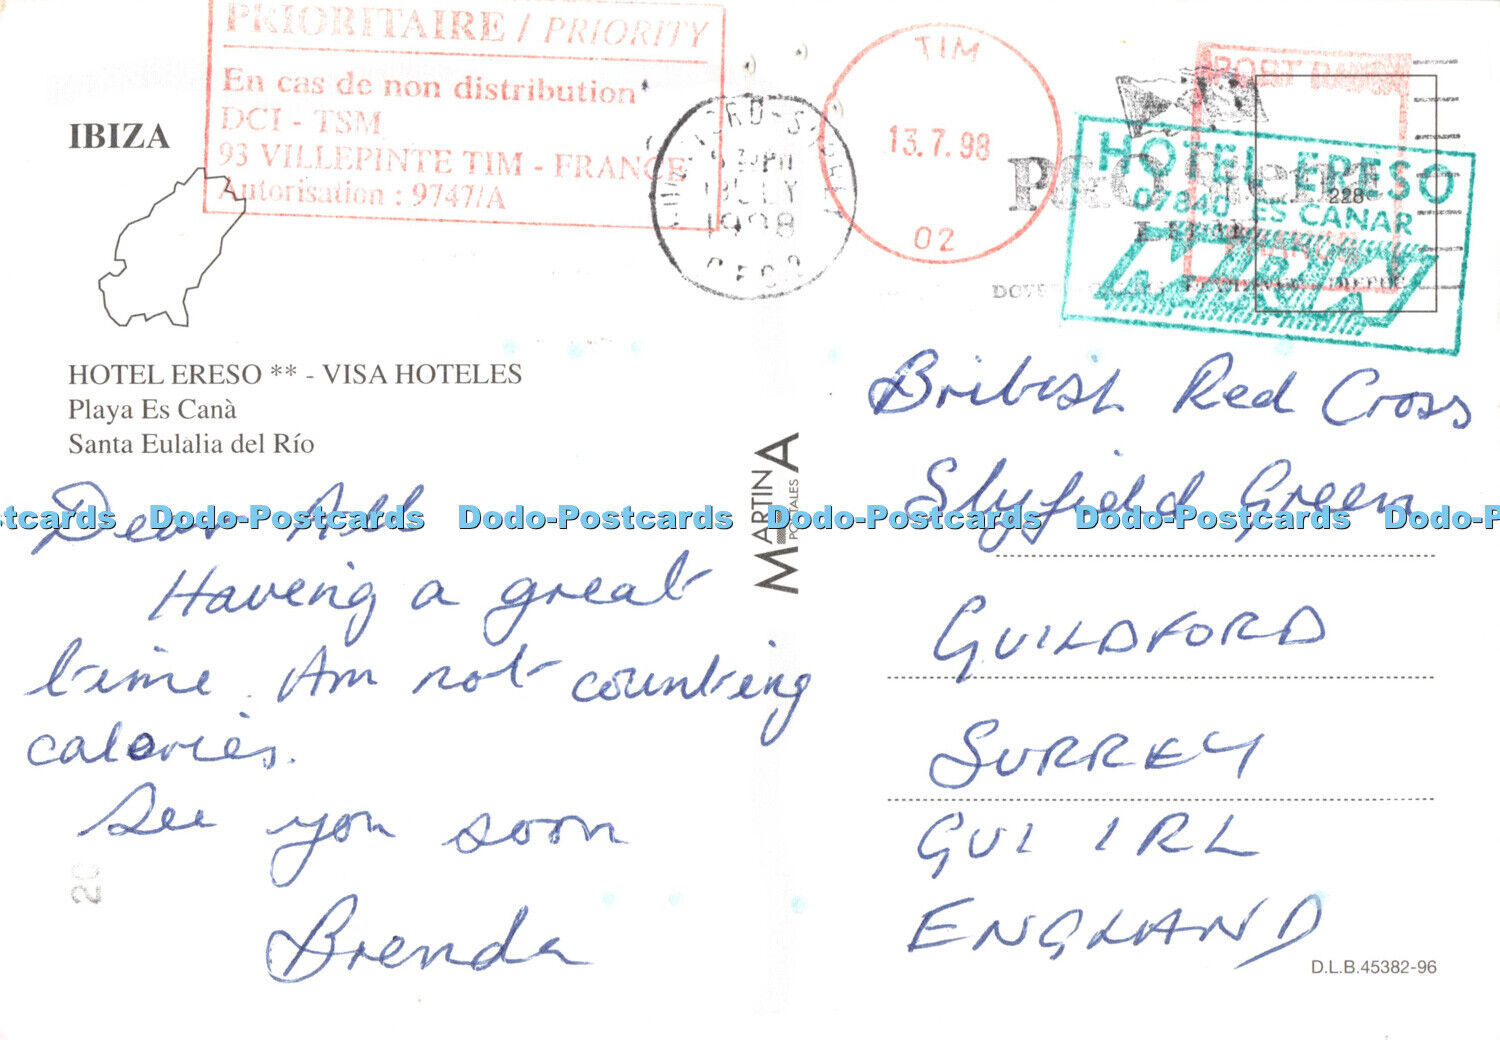 PRIORITAIRE / PRIORITY
En cas de non distribution
DCI - TSM
93 VILLEPINTE TIM - FRANCE
Autorisation : 9747/A
TIM
13.7.98
02
1998
HOTEL ERESO
07840 ES CANAR
228
IBIZA
HOTEL ERESO ** - VISA HOTELES
Playa Es Canà
Santa Eulalia del Río
Dear All
Having a great
time. Am not counting
calories.
See you soon
Brenda
20
MARTIN
POSTALES
British Red Cross
Slyfield Green
GUILDFORD
SURREY
GUI 1RL
ENGLAND
D.L.B.45382-96
Dodo-Postcards Dodo-Postcards Dodo-Postcards Dodo-Postcards